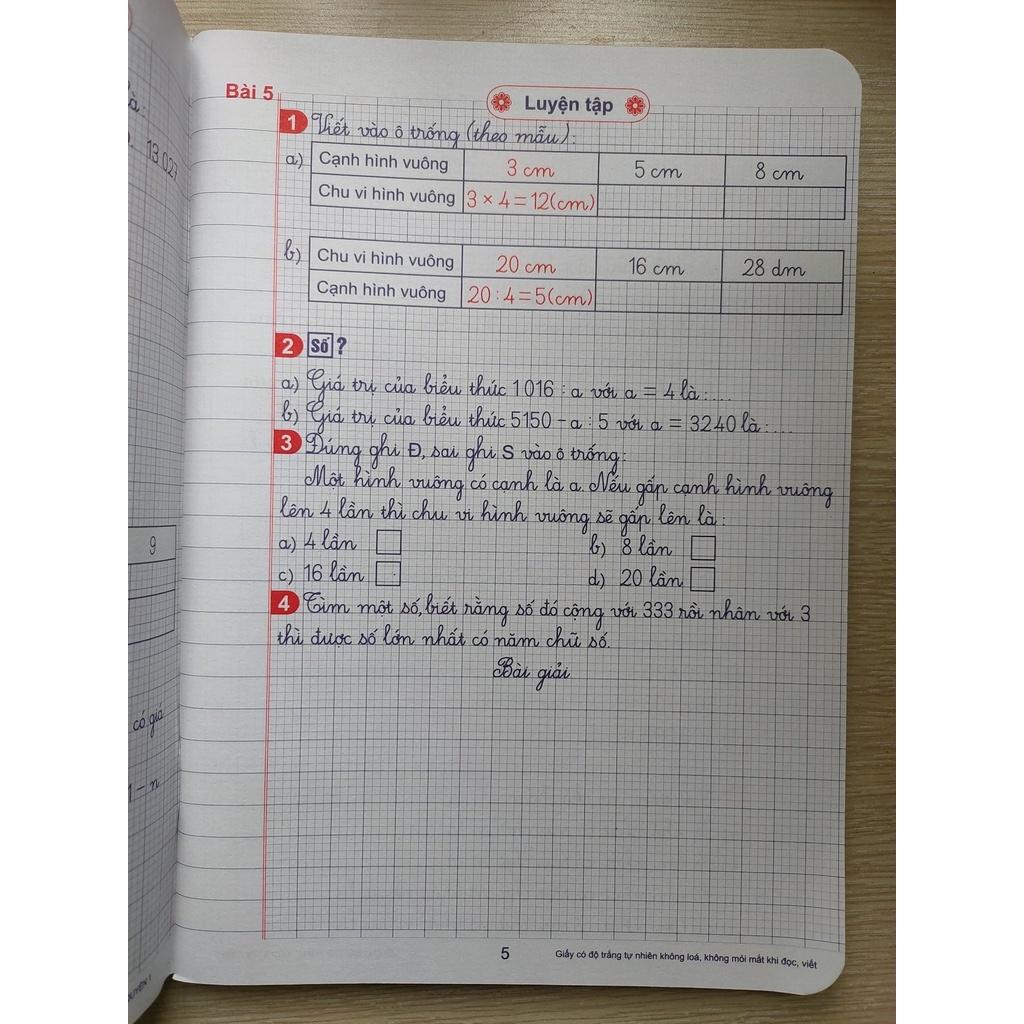 Bài 5
Luyện tập
1 Viết vào ô trống (theo mẫu):
a) Cạnh hình vuông 3 cm 5 cm 8 cm
Chu vi hình vuông 3 × 4 = 12(cm)
b) Chu vi hình vuông 20 cm 16 cm 28 dm
Cạnh hình vuông 20 : 4 = 5(cm)
2 Số ?
a) Giá trị của biểu thức 1016 : a với a = 4 là:....
b) Giá trị của biểu thức 5150 - a : 5 với a = 3240 là:....
3 Đúng ghi Đ, sai ghi S vào ô trống:
Một hình vuông có cạnh là a. Nếu gấp cạnh hình vuông
lên 4 lần thì chu vi hình vuông sẽ gấp lên là:
a) 4 lần b) 8 lần
c) 16 lần d) 20 lần
4 Tìm một số, biết rằng số đó cộng với 333 rồi nhân với 3
thì được số lớn nhất có năm chữ số.
Bài giải
5
Giấy có độ trắng tự nhiên không loá, không mỏi mắt khi đọc, viết
13 027
9
có giá
- n